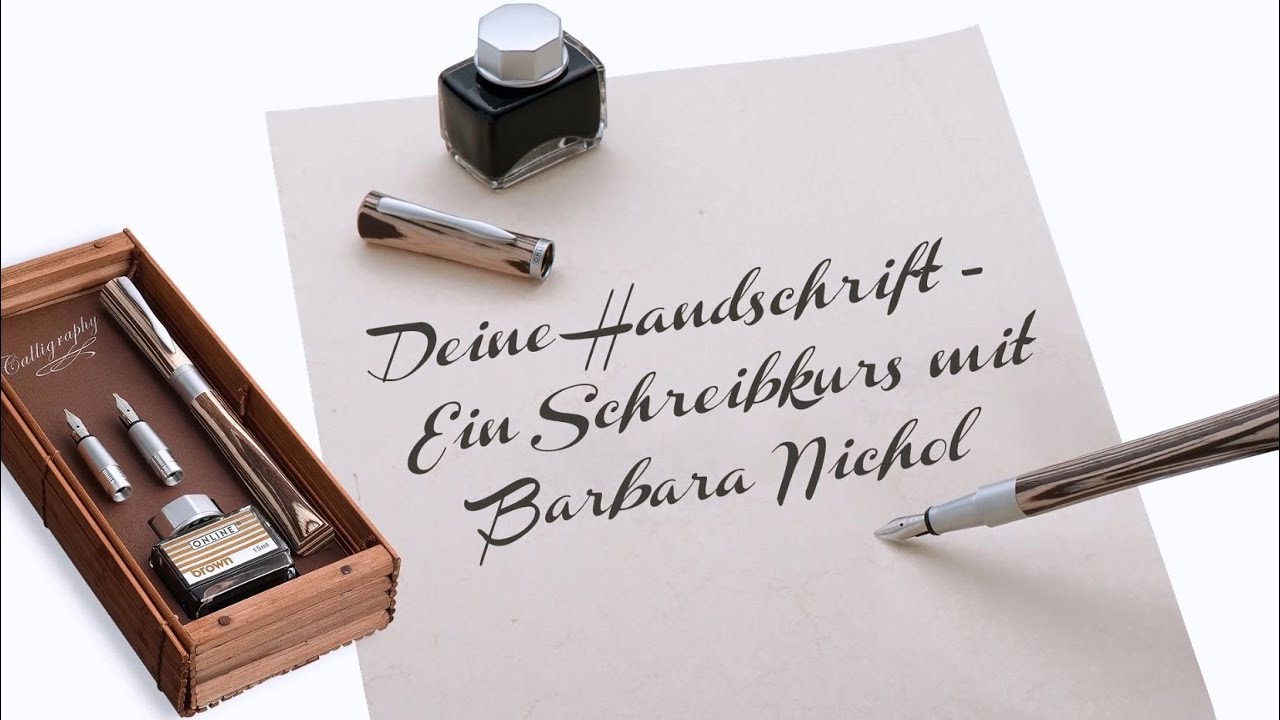 Deine Handschrift -
Ein Schreibkurs mit
Barbara Nichol
Calligraphy
ONLINE
15ml
brown